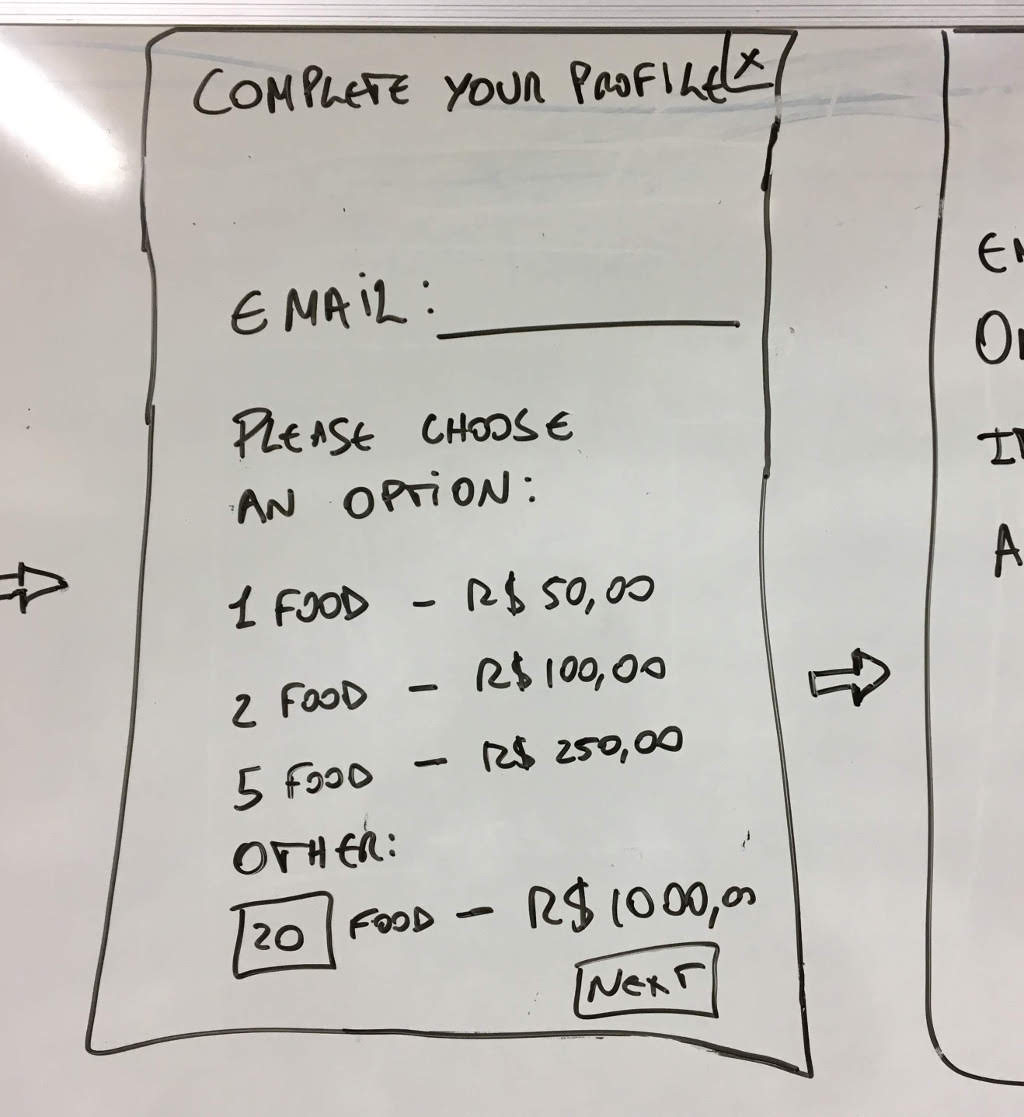 COMPLETE YOUR PROFILE X
EMAIL:
PLEASE CHOOSE
AN OPTION:
1 FOOD - R$ 50,00
2 FOOD - R$ 100,00
5 FOOD - R$ 250,00
OTHER:
20 FOOD - R$ 1000,00
NEXT